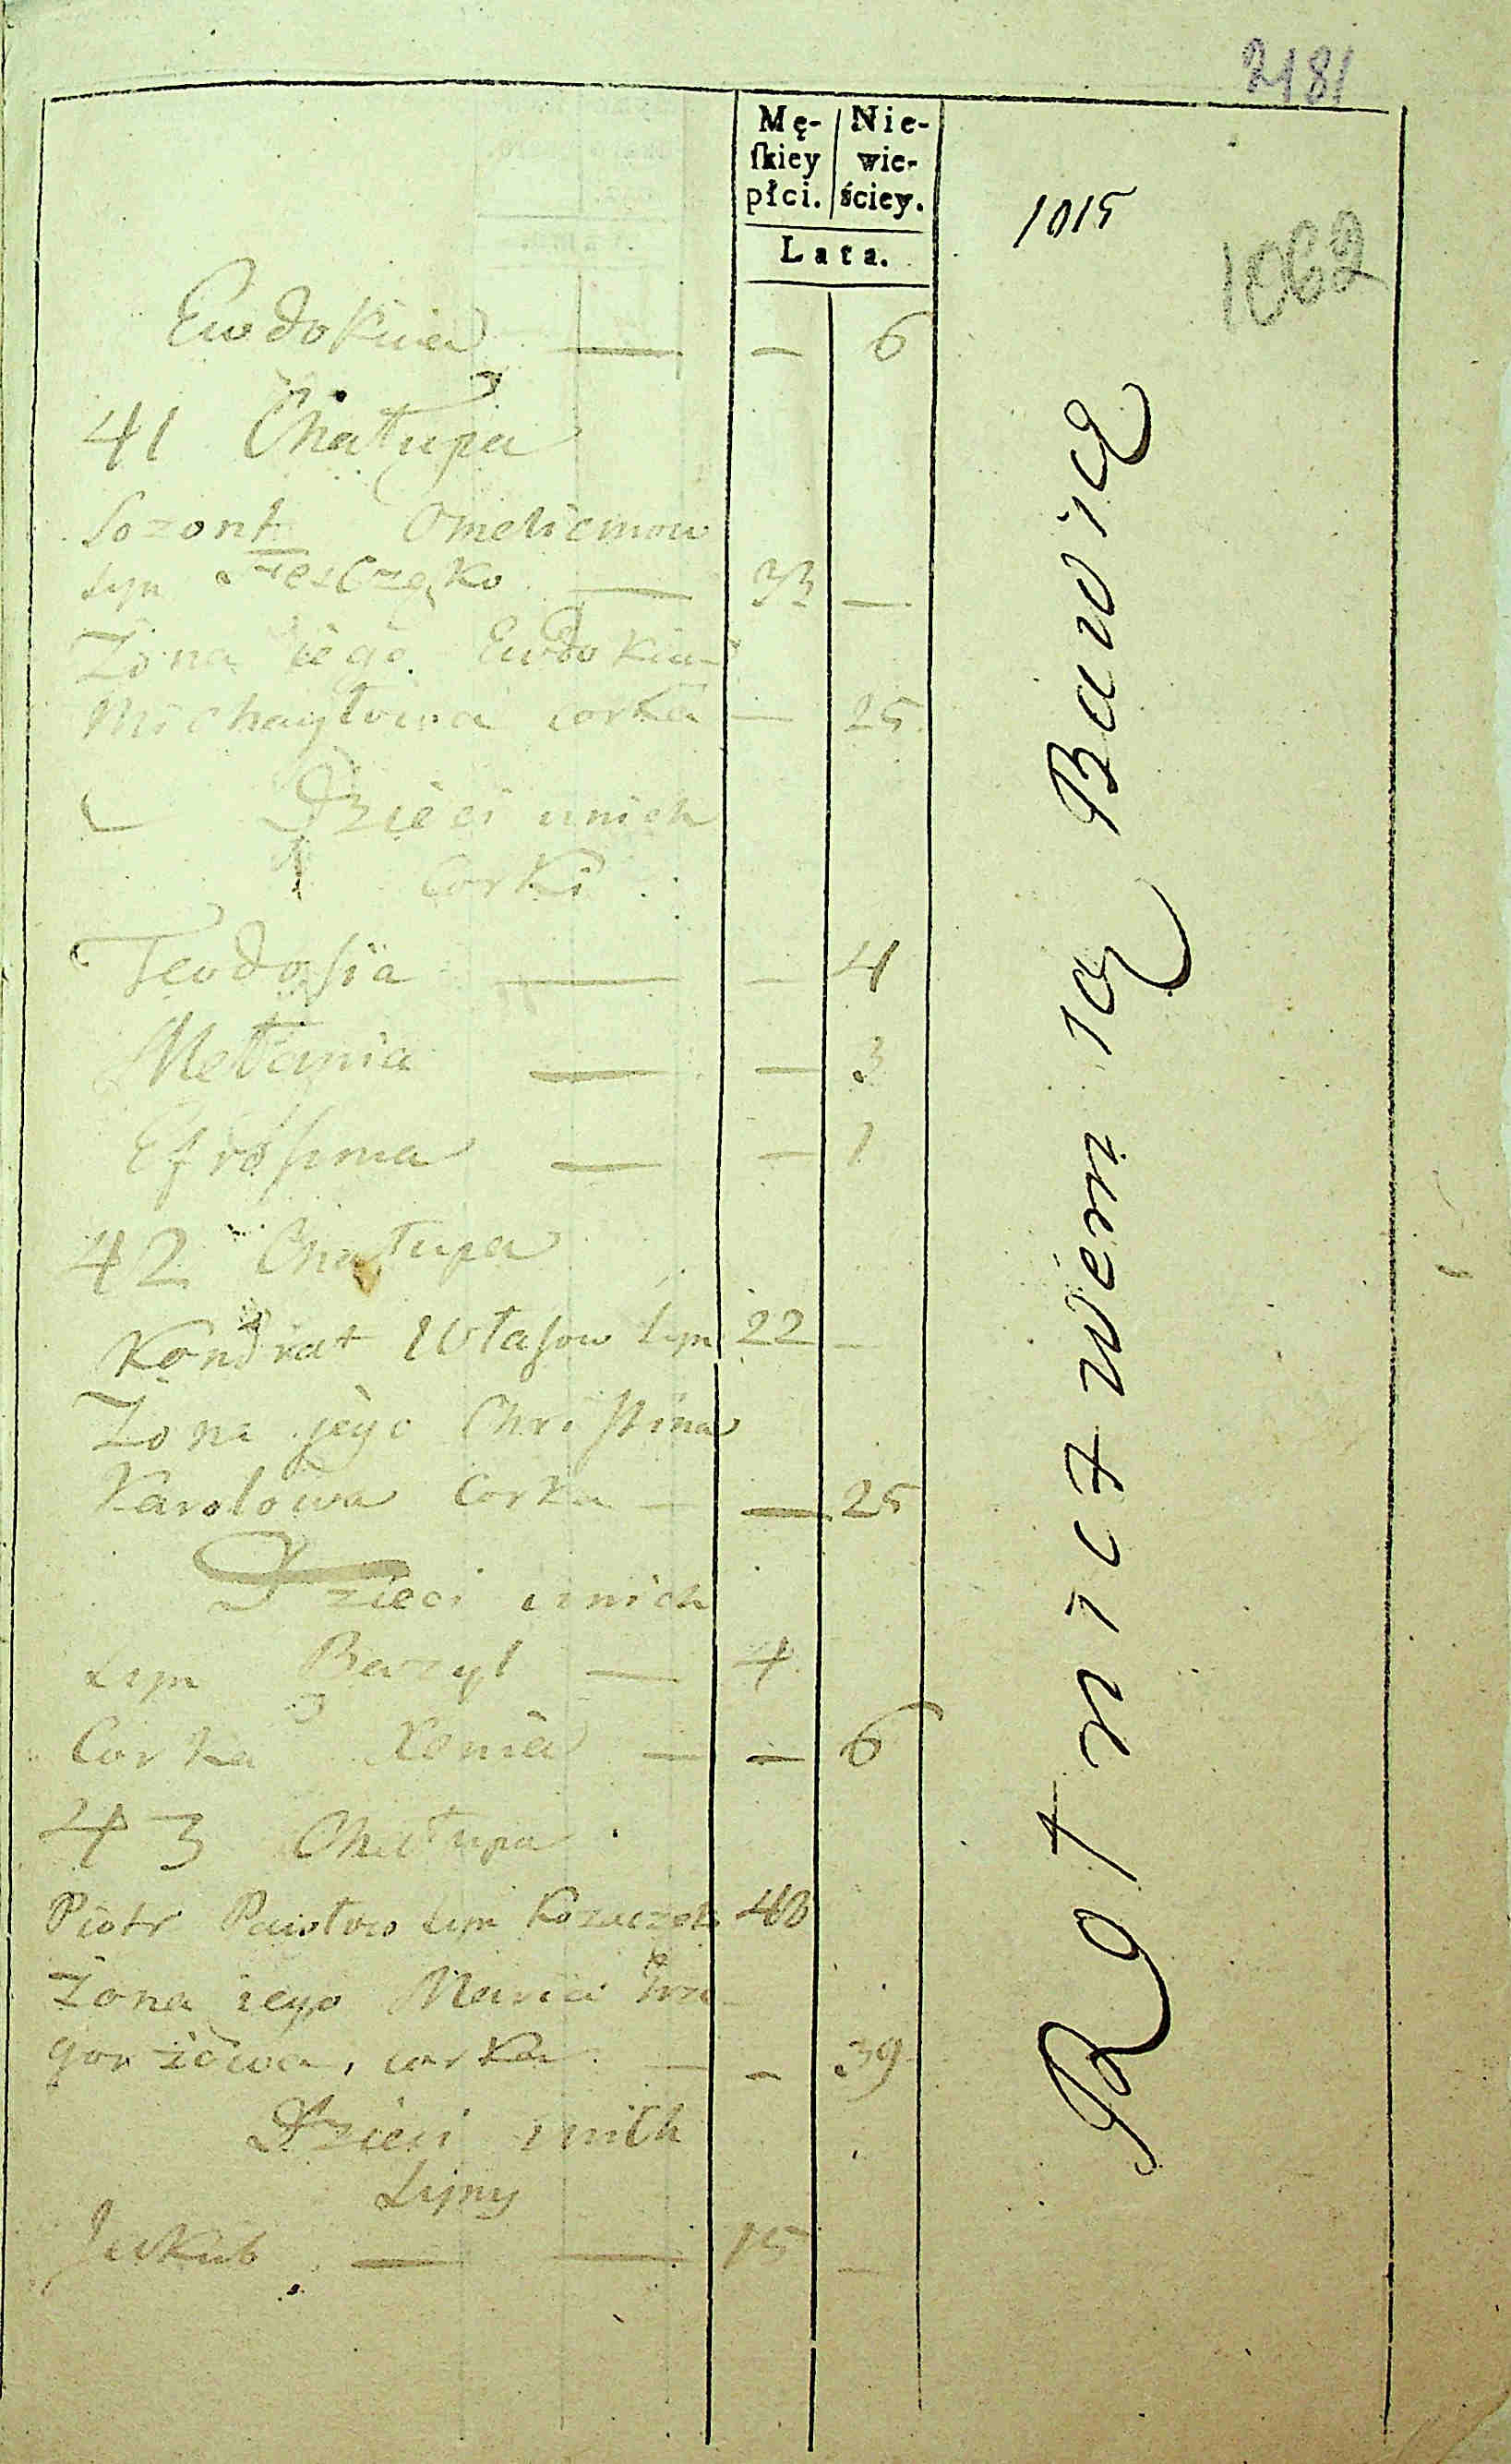 2181
Mę- Nie-
ſkiey wie-
płci. ściey.
Lata.
1015
1062
Ewdokia — — 6
41 Chałupa
Sozont Omelianow
Syn 33 —
Zona iego Ewdokia
Michayłowa corka — 25
Dzieci unich
Corki
Teodosia — — 4
Mełania — — 3
Efrosima — — 1
42 Chałupa
Kondrat Własow Syn 22 —
Zona jego Christina
Karolowa Corka — — 25
Dzieci unich
Syn Bazyl — 4
Corka Xenia — — 6
43 Chałupa
Piotr Pawłow Syn 40
Zona iego Maria Hry
gorżowa, corka — — 39
Dzieci unich
Syny
Jakub — — 15 —
Rotnictwem się Bawią